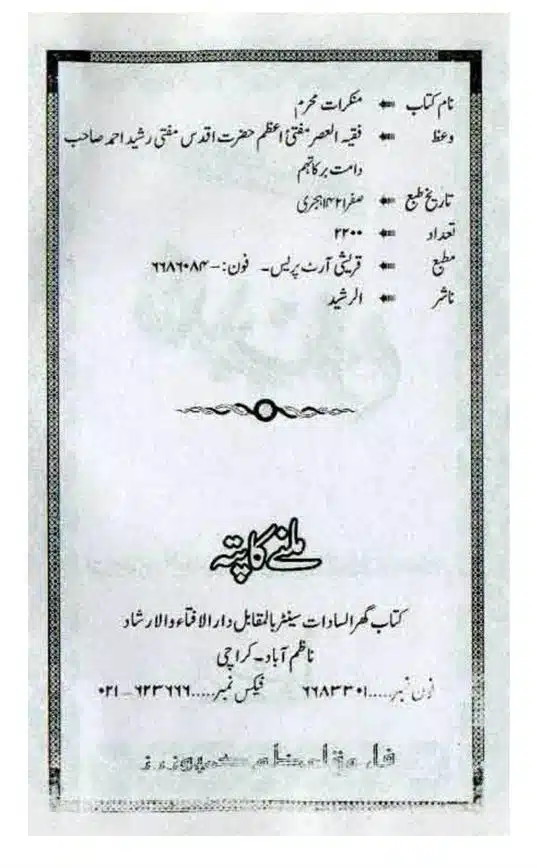 نام کتاب ⇚ منکرات محرم
وعظ ⇚ فقیہ العصر مفتیٔ اعظم حضرت اقدس مفتی رشید احمد صاحب
دامت برکاتہم
تاریخ طبع ⇚ صفر ۱۴۲۱ہجری
تعداد ⇚ ۲۲۰۰
مطبع ⇚ قریشی آرٹ پریس۔ فون:- ۶۶۸۶۰۸۴
ناشر ⇚ الرشید
ملنے کا پتہ
کتاب گھر السادات سینٹر بالمقابل دار الافتاء والارشاد
ناظم آباد۔ کراچی
فون نمبر.....۶۶۸۳۳۰۱ فیکس نمبر.....۶۲۳۶۶۶ - ۰۲۱
فاروق اعظم کمپوزرز